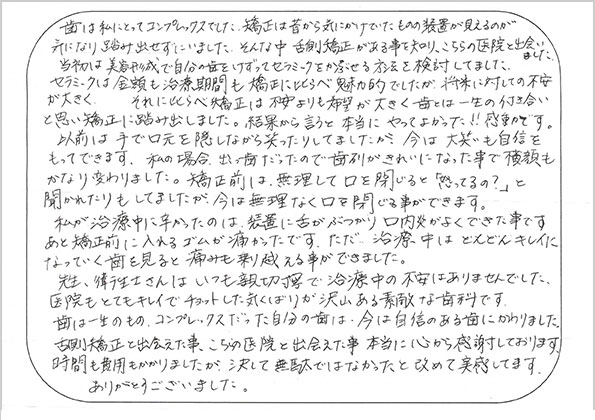 歯は私にとってコンプレックスでした。矯正は昔から気にかけていたものの装置が見えるのが
気になり踏み出せずにいました。そんな中 舌側矯正がある事を知り、こちらの医院と出会いました。
当初は美容形成で自分の歯をけずってセラミックをかぶせる方法を検討してました。
セラミックは金額も治療期間も矯正に比らべ魅力的でしたが、将来に対しての不安
が大きく、 それに比らべ矯正は不安よりも希望が大きく歯とは一生の付き合い
と思い矯正に踏み出しました。結果から言うと本当にやってよかった!!感動です。
以前は手で口元を隠しながら笑ったりしてましたが、今は大笑いも自信を
もってできます。私の場合、出っ歯だったので歯列がきれいになった事で横顔も
かなり変わりました。矯正前は、無理して口を閉じると「怒ってるの?」と
聞かれたりもしてましたが、今は無理なく口を閉じる事ができます。
私が治療中に辛かったのは、装置に舌がぶつかり口内炎がよくできた事です
あと矯正前に入れるゴムが痛かったです。ただ、治療中はどんどんキレイに
なっていく歯を見ると痛みも乗り越える事ができました。
先生、衛生士さんはいつも親切丁寧で治療中の不安はありませんでした。
医院もとてもキレイでチョットした気くばりが沢山ある素敵な歯科です。
歯は一生のもの、コンプレックスだった自分の歯は、今は自信のある歯にかわりました。
舌側矯正と出会えた事、こちらの医院と出会えた事 本当に心から感謝しております。
時間も費用もかかりましたが、決して無駄ではなかったと改めて実感してます。
ありがとうございました。